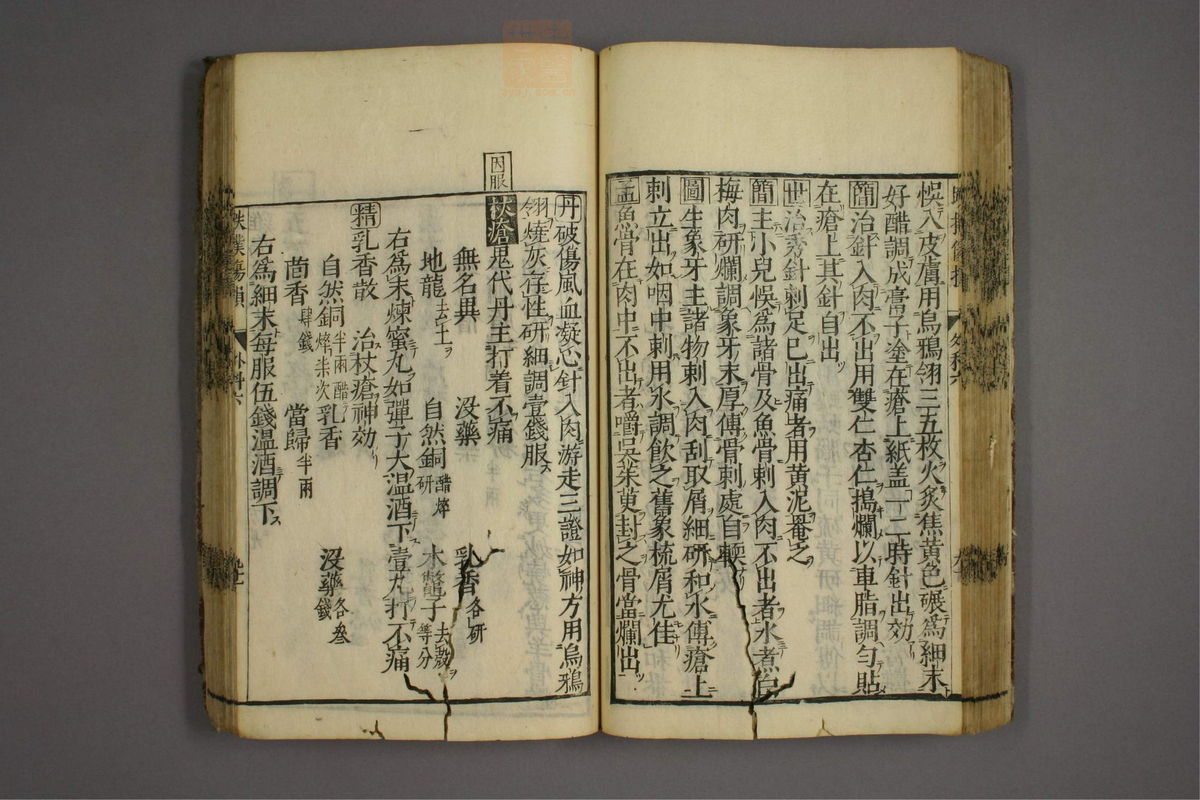 悞入皮膚用烏鴉翎三五枚火炙焦黃色碾為細末
好醋調成膏子塗在瘡上紙盖一二時針出効
簡治針入肉不出用雙仁杏仁搗爛以車脂調勻貼
在瘡上其針自出
世治秀針刺足已出痛者用黃泥罨之
簡主小兒悞為諸骨及魚骨刺入肉不出者水煮白
梅肉研爛調象牙末厚傅骨刺處自軟
圖生象牙主諸物刺入肉刮取屑細研和水傅瘡上
刺立出如咽中刺用水調飲之舊象梳屑尤佳
孟魚骨在肉中不出者嚼吳茱萸封之骨當爛出
丹破傷風血凝心針入肉游走三證如神方用烏鴉
翎燒灰存性研細調壹錢服
因服
杖瘡鬼代丹主打着不痛
無名異 没藥 乳香各研
地龍去土 自然銅醋焠研 木鼈子去殼等分
右為末煉蜜丸如彈子大溫酒下壹丸打不痛
精乳香散 治杖瘡神効
自然銅半兩醋焠柒次 乳香 没藥各叁錢
茴香肆錢 當歸半兩
右為細末每服伍錢溫酒調下
跌撲傷損 外科六